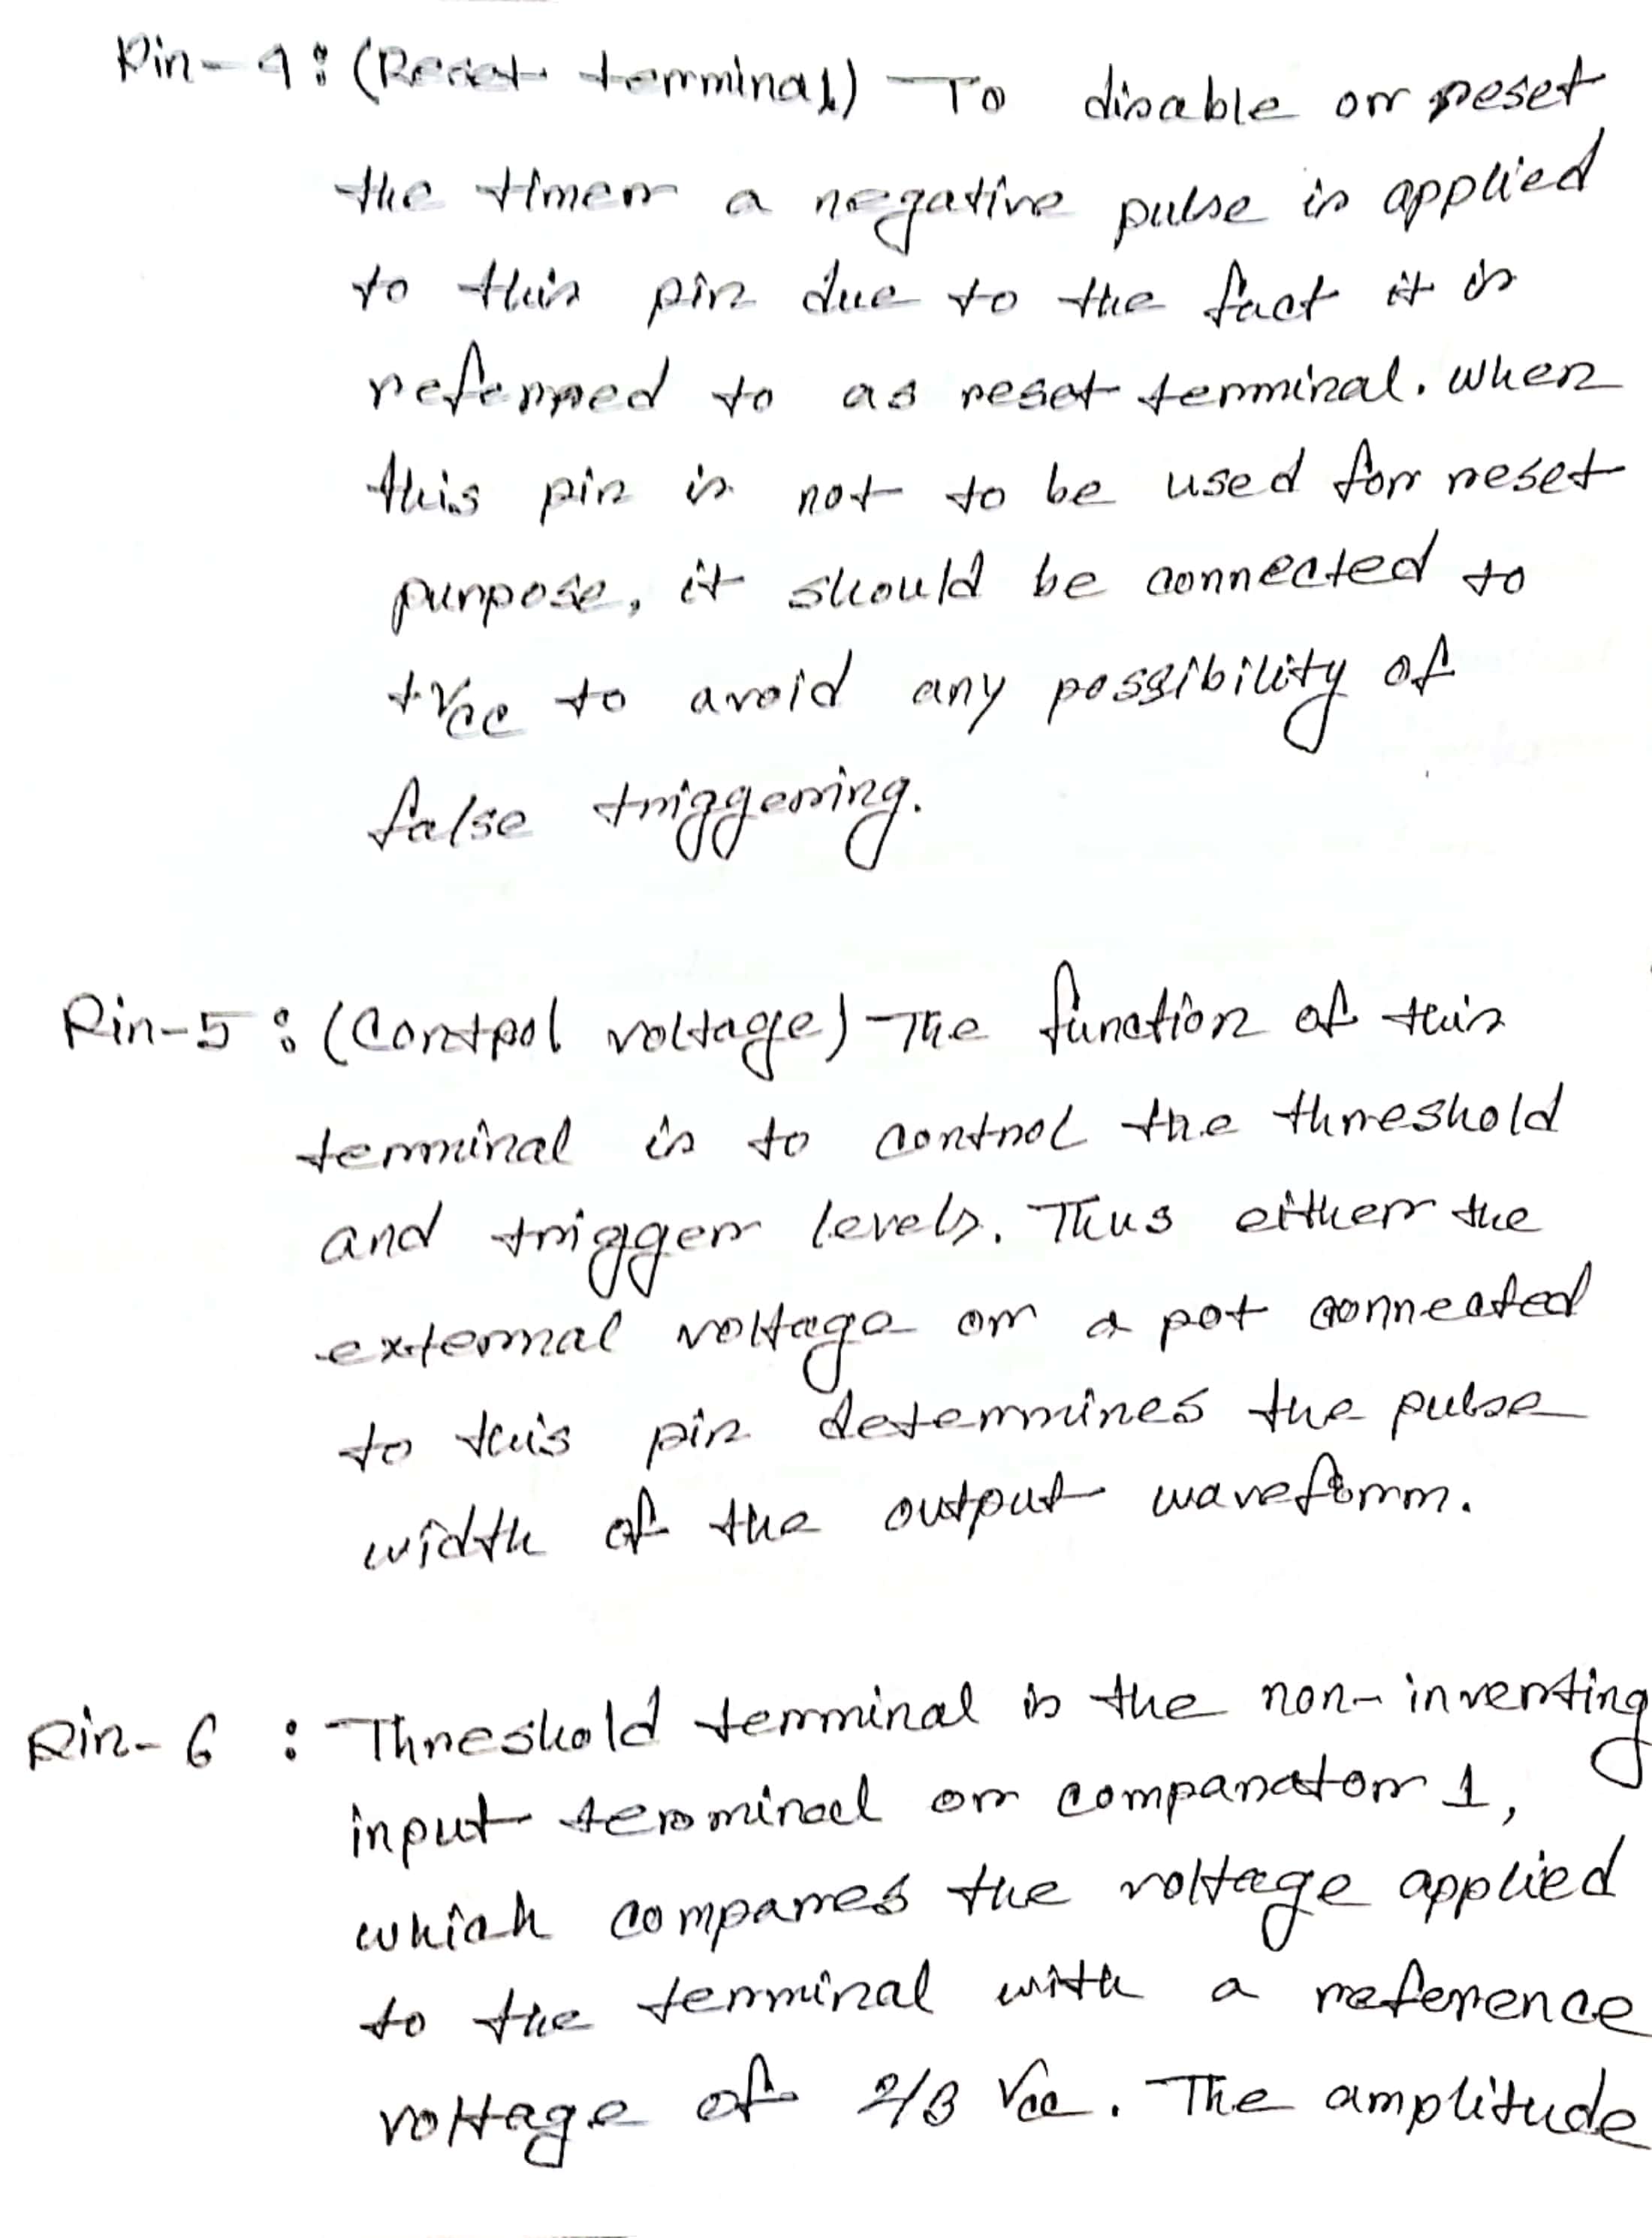 Pin-4: (Reset terminal) To disable or reset
the timer a negative pulse is applied
to this pin due to the fact it is
referred to as reset terminal. When
this pin is not to be used for reset
purpose, it should be connected to
+Vcc to avoid any possibility of
false triggering.
Pin-5: (Control voltage) The function of this
terminal is to control the threshold
and trigger levels. Thus either the
external voltage or a pot connected
to this pin determines the pulse
width of the output waveform.
Pin-6 : Threshold terminal is the non-inverting
input terminal or comparator 1,
which compares the voltage applied
to the terminal with a reference
voltage of 2/3 Vcc. The amplitude